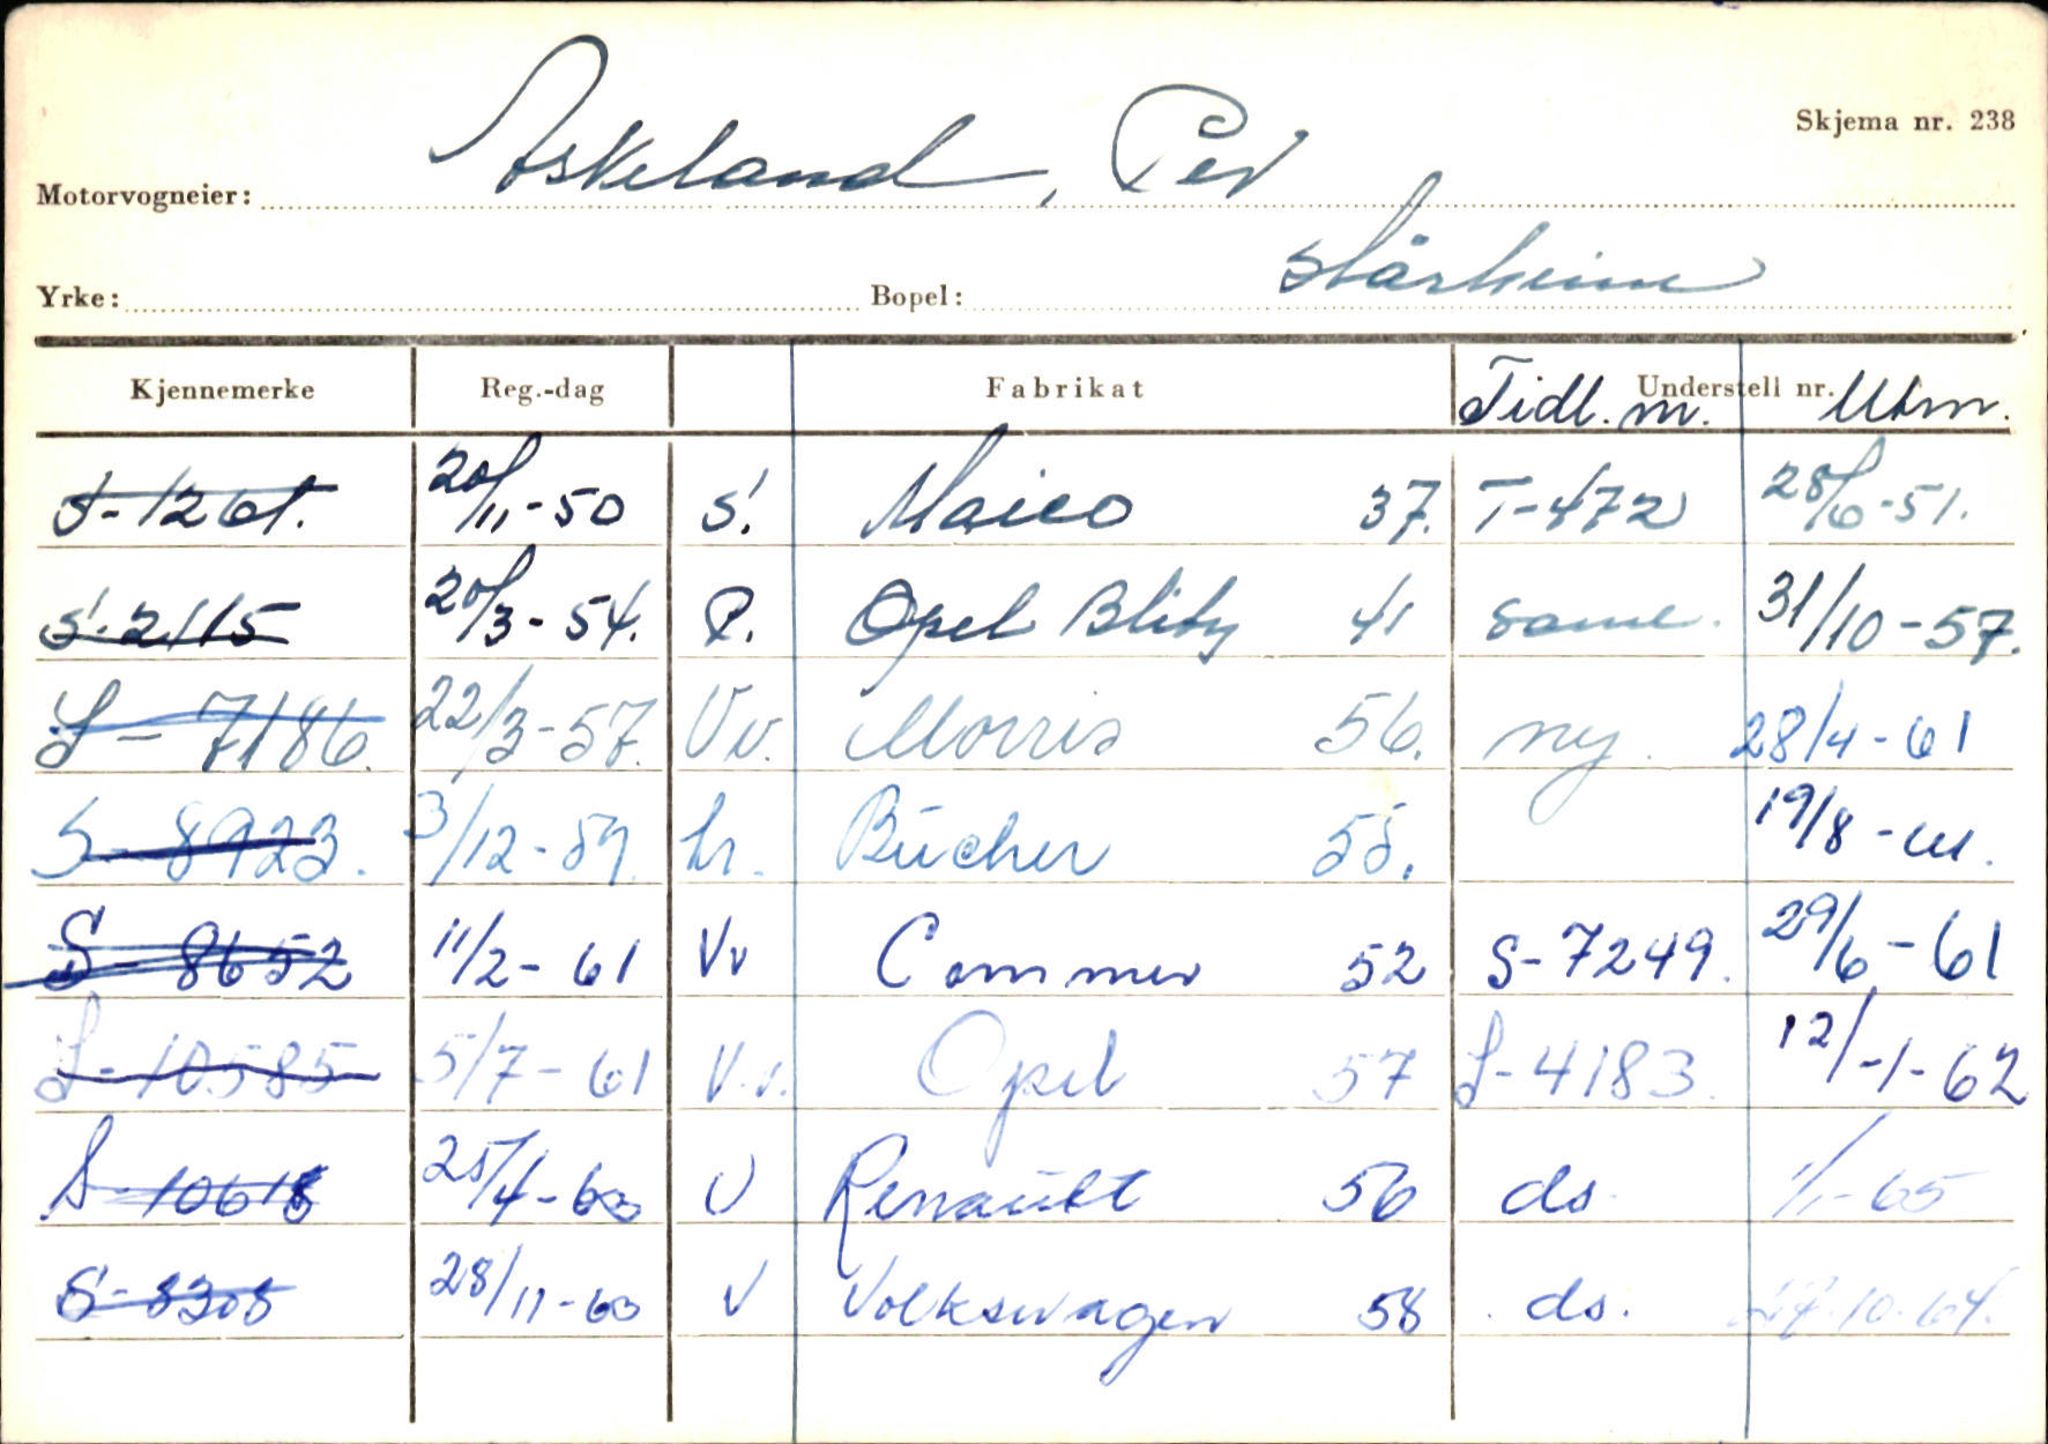 Skjema nr. 238
Motorvogneier: Askeland, Per
Yrke: Bopel: Stårheim
Kjennemerke Reg.-dag Fabrikat Understell nr. Tidl. m. Utm.
S-1261. 20/11-50 S. Maico 37. T-472 28/6-51.
S-2115 20/3-54. P. Opel Blitz 41 same. 31/10-57.
S-7186. 22/3-57. Vv. Morris 56. ny. 28/4-61
S-8923. 3/12-59. Lr. Bücher 55. 19/8-61.
S-8652 11/2-61 Vv Commer 52 S-7249. 29/6-61
S-10585 5/7-61 V.v. Opel 57 S-4183. 12/-1-62
S-10618 25/4-63 V Renault 56 ds 1/1-65
S-8308 28/11-63 V Volkswagen 58 ds. 10-64.